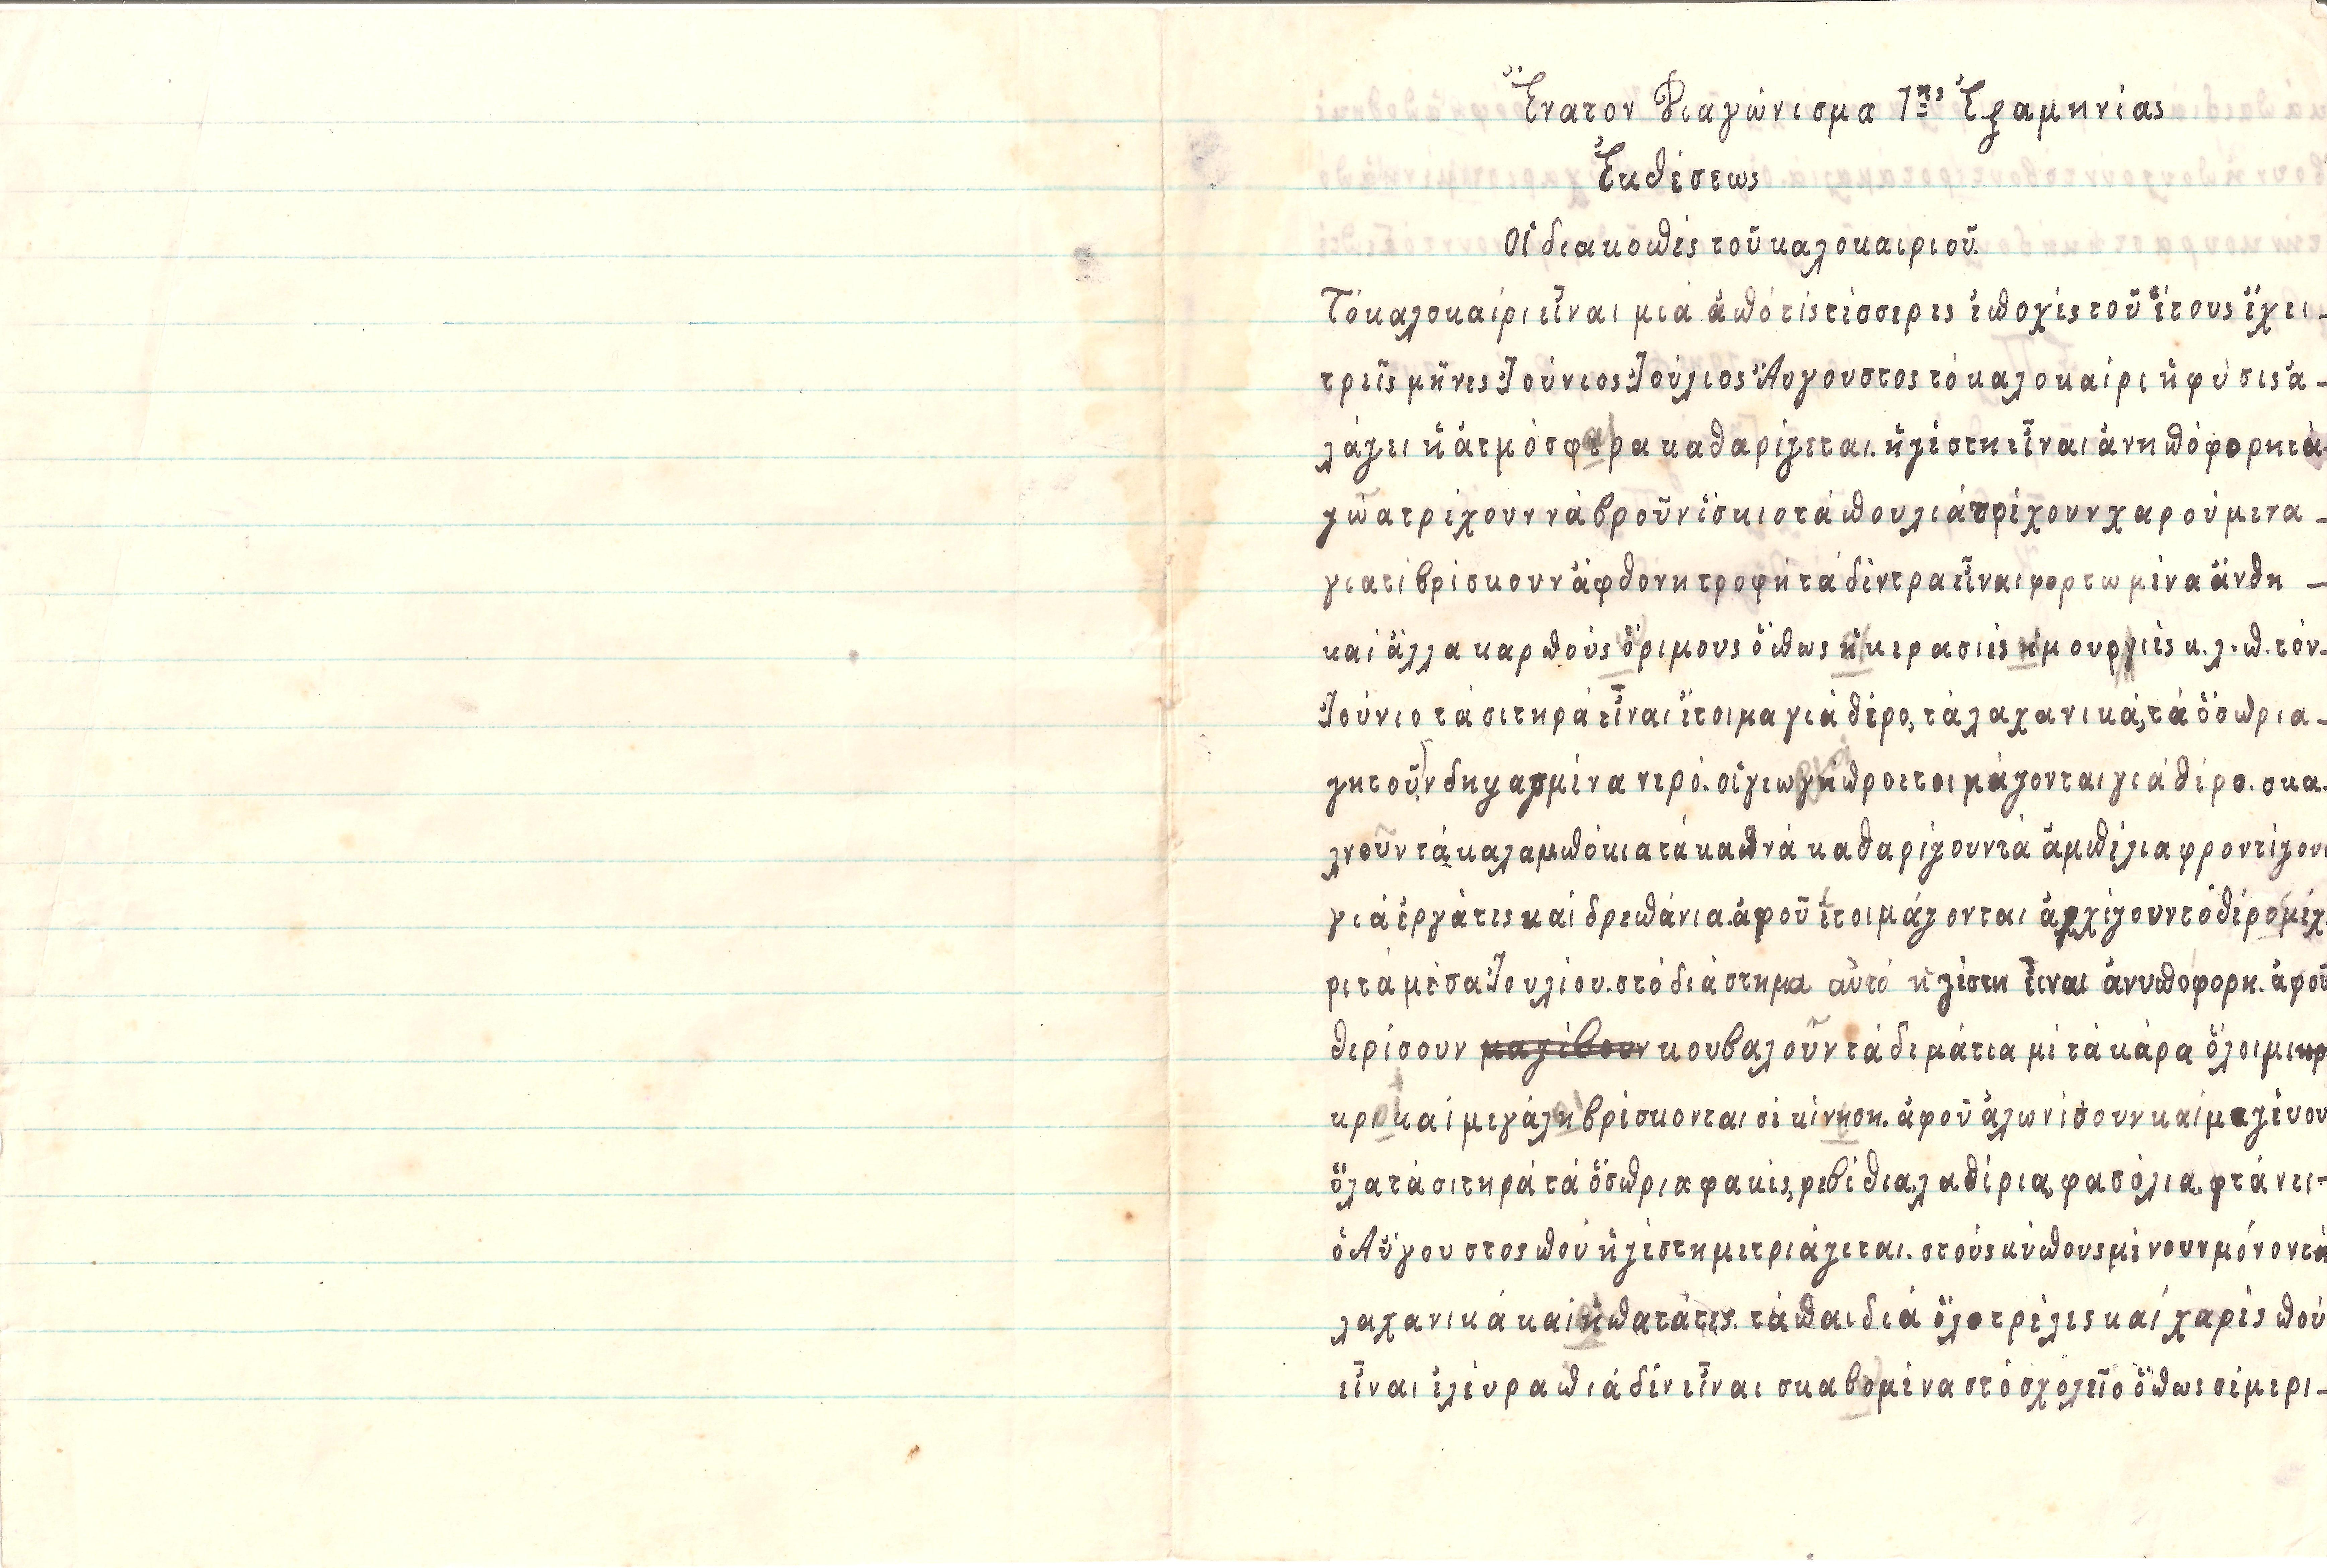 Ἔνατον Διαγώνισμα 1ης Ἑξαμηνίας
Ἐκθέσεως
Οἱ διακοπές τοῦ καλοκαιριοῦ.
Τό καλοκαίρι εἶναι μιά ἀπό τίς τέσσερες ἐποχές τοῦ ἔτους ἔχει
τρεῖς μῆνες Ἰούνιος Ἰούλιος Αὔγουστος τό καλοκαίρι ἡ φύσις ἀ-
λάζει ἡ ἀτμόσφερα καθαρίζεται. ἡ ζέστη εἶναι ἀνηπόφορη τά
ζῶα τρέχουν νά βροῦν ἴσκιο τά πουλιά τρέχουν χαρούμενα
γιατί βρίσκουν ἄφθονη τροφή τά δέντρα εἶναι φορτωμένα ἄνθη
καί ἄλλα καρπούς ὅριμους ὅπως ἡ κερασιές ἡ μουργιές κ.λ.π. τόν
Ἰούνιο τά σιτηρά εἶναι ἕτοιμα γιά θέρο, τά λαχανικά, τά ὄσπρια
ζητοῦν δηψασμένα νερό. οἱ γεωγη προετοιμάζονται γιά θέρο. σκα-
λνοῦν τά καλαμπόκια τά καπνά καθαρίζουν τά ἀμπέλια φροντίζουν
γιά ἐργάτες καί δρεπάνια. ἀφοῦ ἑτοιμάζονται ἀρχίζουν τό θέρο μέχ
ρι τά μέσα Ἰουλίου. στό διάστημα αὐτό ἡ ζέστη εἶναι ἀνυπόφορη. ἀφοῦ
θερίσουν μαζέβουν κουβαλοῦν τά δεμάτια μέ τά κάρα ὅλοι μικρ
κρι καί μεγάλη βρίσκονται σέ κίνηση. ἀφοῦ ἁλωνίσουν καί μαζέυου
ὅλα τά σιτηρά τά ὄσπρια φακές, ρεβίθια, λαθίρια, φασόλια, φτάνει
ὁ Αὔγουστος πού ἡ ζέστη μετριάζεται. στούς κύπους μένουν μόνον τά
λαχανικά καί ἡ πατάτες. τά παιδιά ὅλο τρέλες καί χαρές πού
εἶναι ἐλέυρα πιά δέν εἶναι σκαβομένα στό σχολεῖο ὅπως σέμερι-